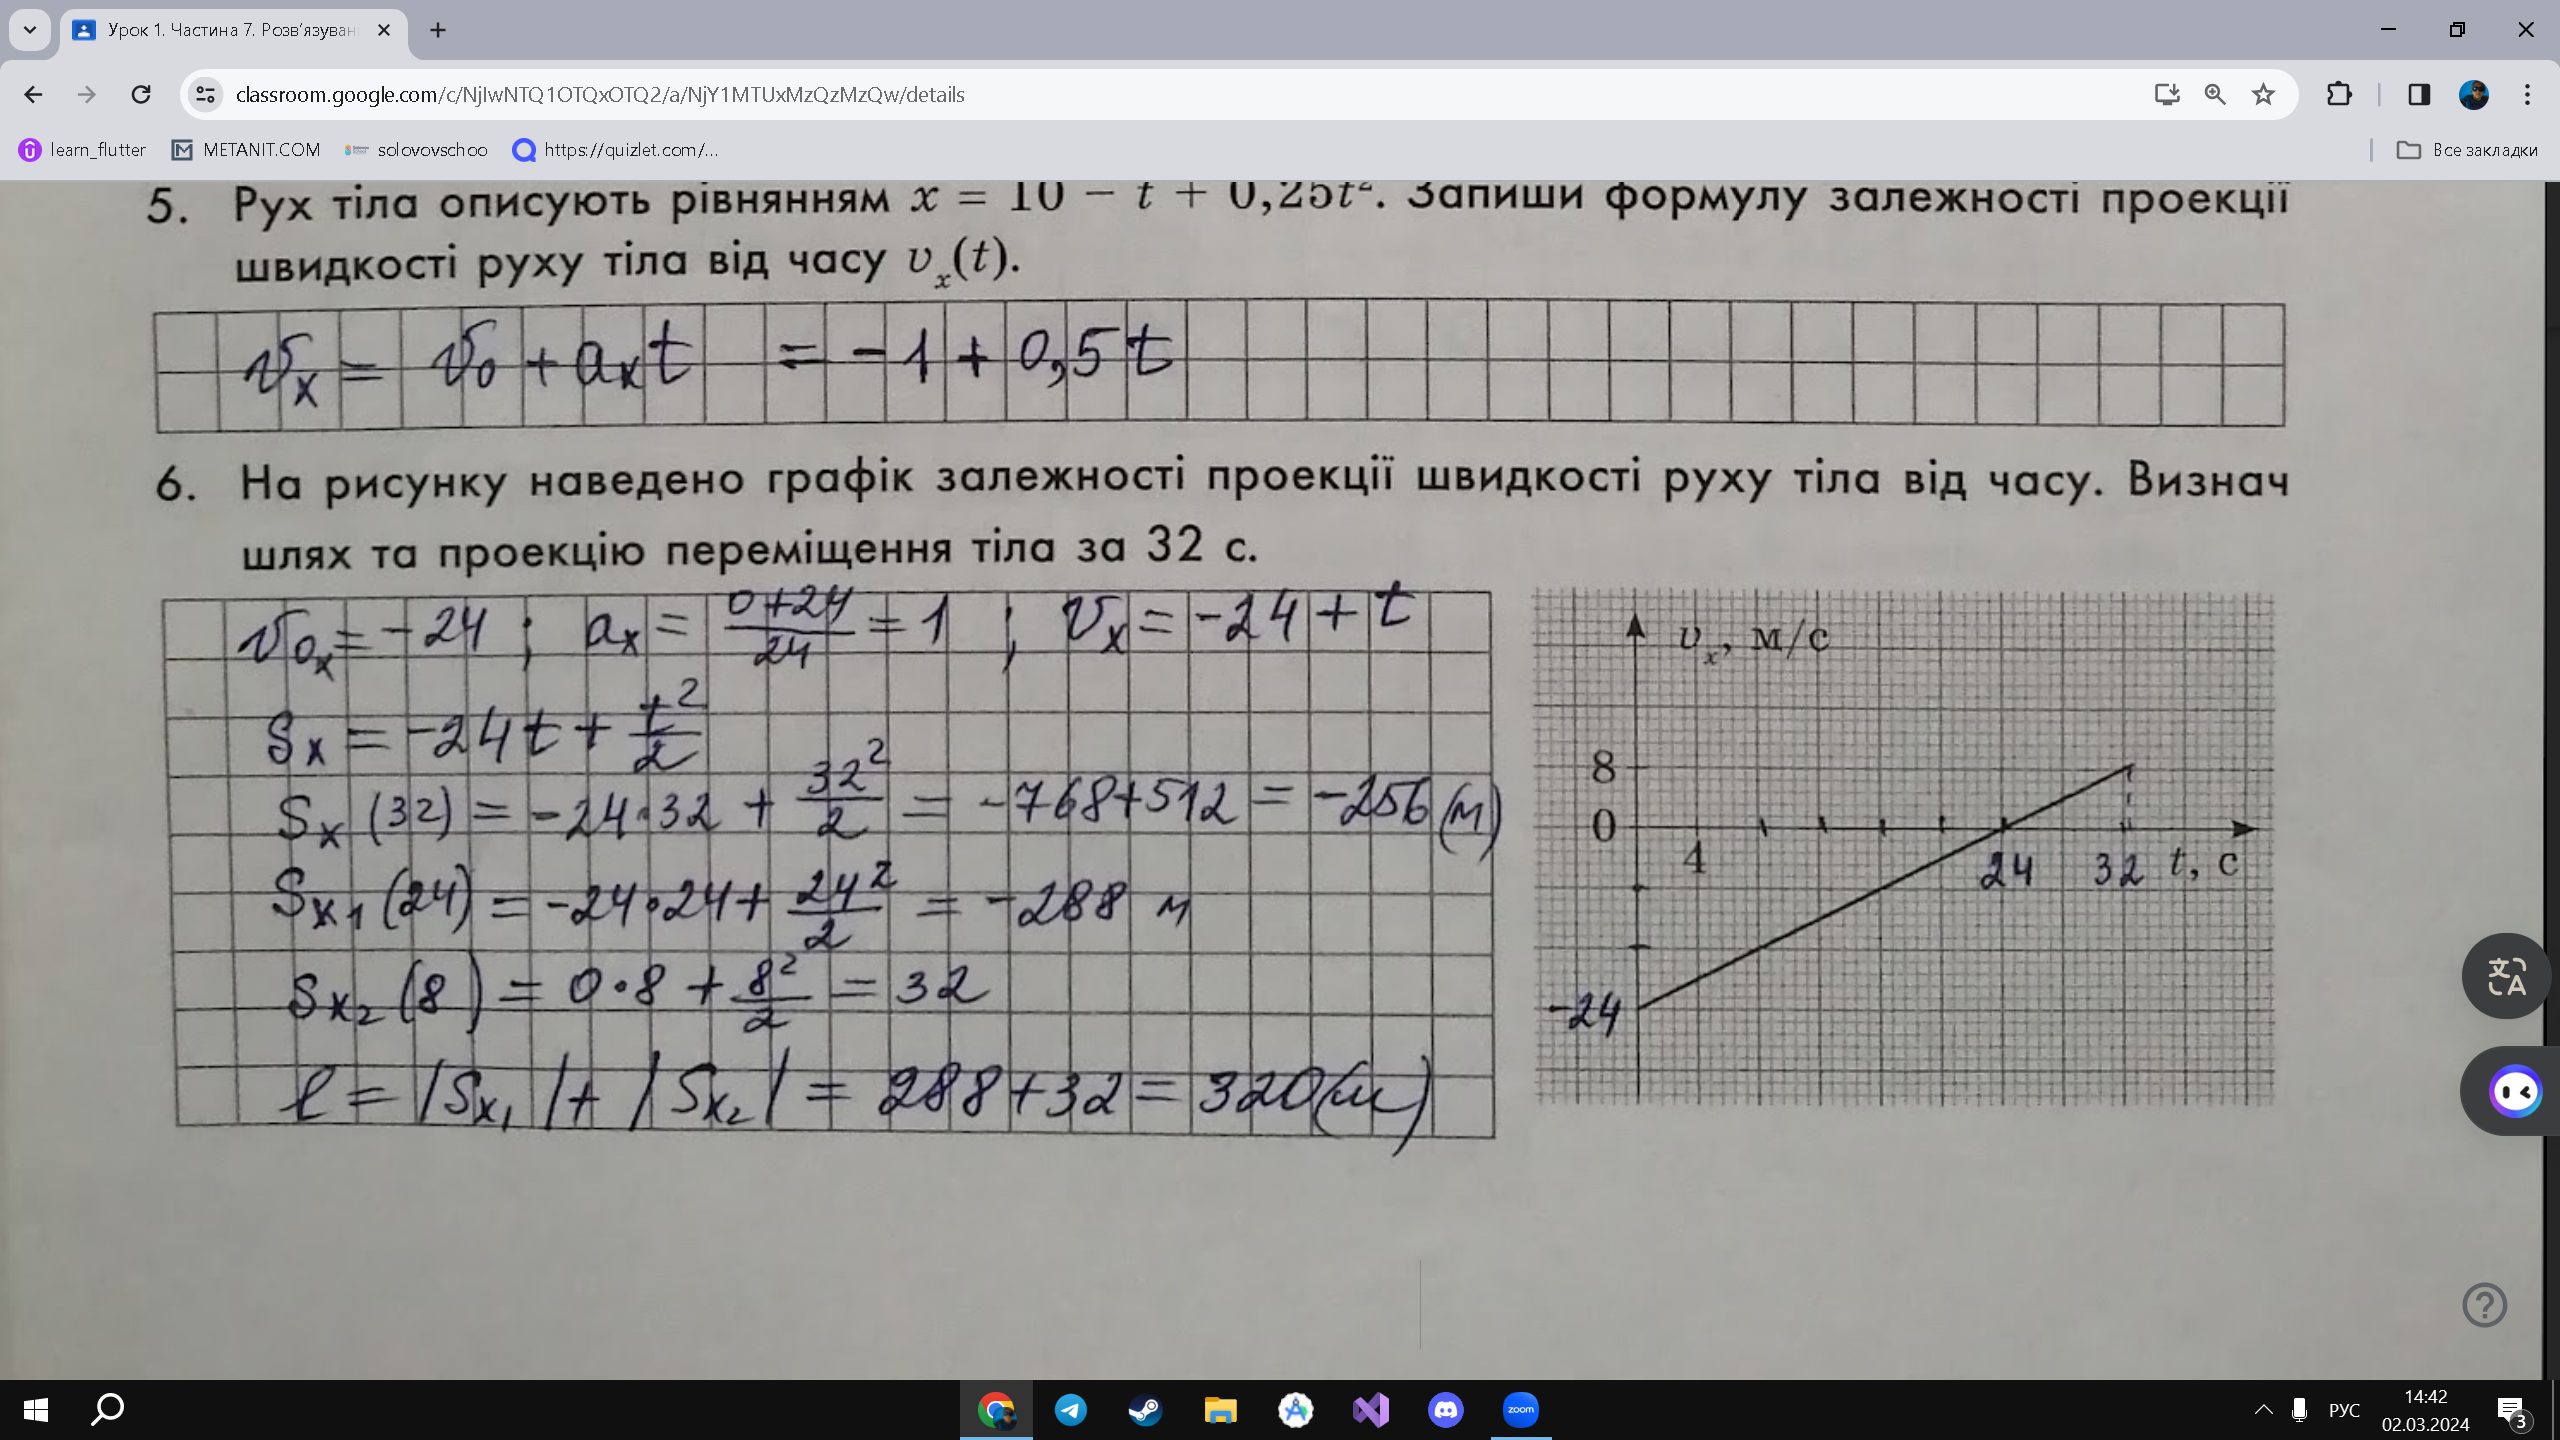 Урок 1. Частина 7. Розв’язуван
classroom.google.com/c/NjIwNTQ1OTQxOTQ2/a/NjY1MTUxMzQzMzQw/details
learn_flutter METANIT.COM solovovschoo https://quizlet.com/... Все закладки
5. Рух тіла описують рівнянням x = 10 − t + 0,25t². Запиши формулу залежності проекції
швидкості руху тіла від часу vₓ(t).
vₓ = v₀ + aₓt = -1 + 0,5t
6. На рисунку наведено графік залежності проекції швидкості руху тіла від часу. Визнач
шлях та проекцію переміщення тіла за 32 с.
v₀ₓ = -24 ; aₓ = (0+24)/24 = 1 ; vₓ = -24 + t
Sₓ = -24t + t²/2
Sₓ (32) = -24·32 + 32²/2 = -768+512 = -256 (м)
Sₓ₁ (24) = -24·24 + 24²/2 = -288 м
Sₓ₂ (8) = 0·8 + 8²/2 = 32
l = |Sₓ₁| + |Sₓ₂| = 288+32 = 320(м)
vₓ, м/с
8
0
4 24 32 t, с
-24
zoom
РУС
14:42
02.03.2024
3